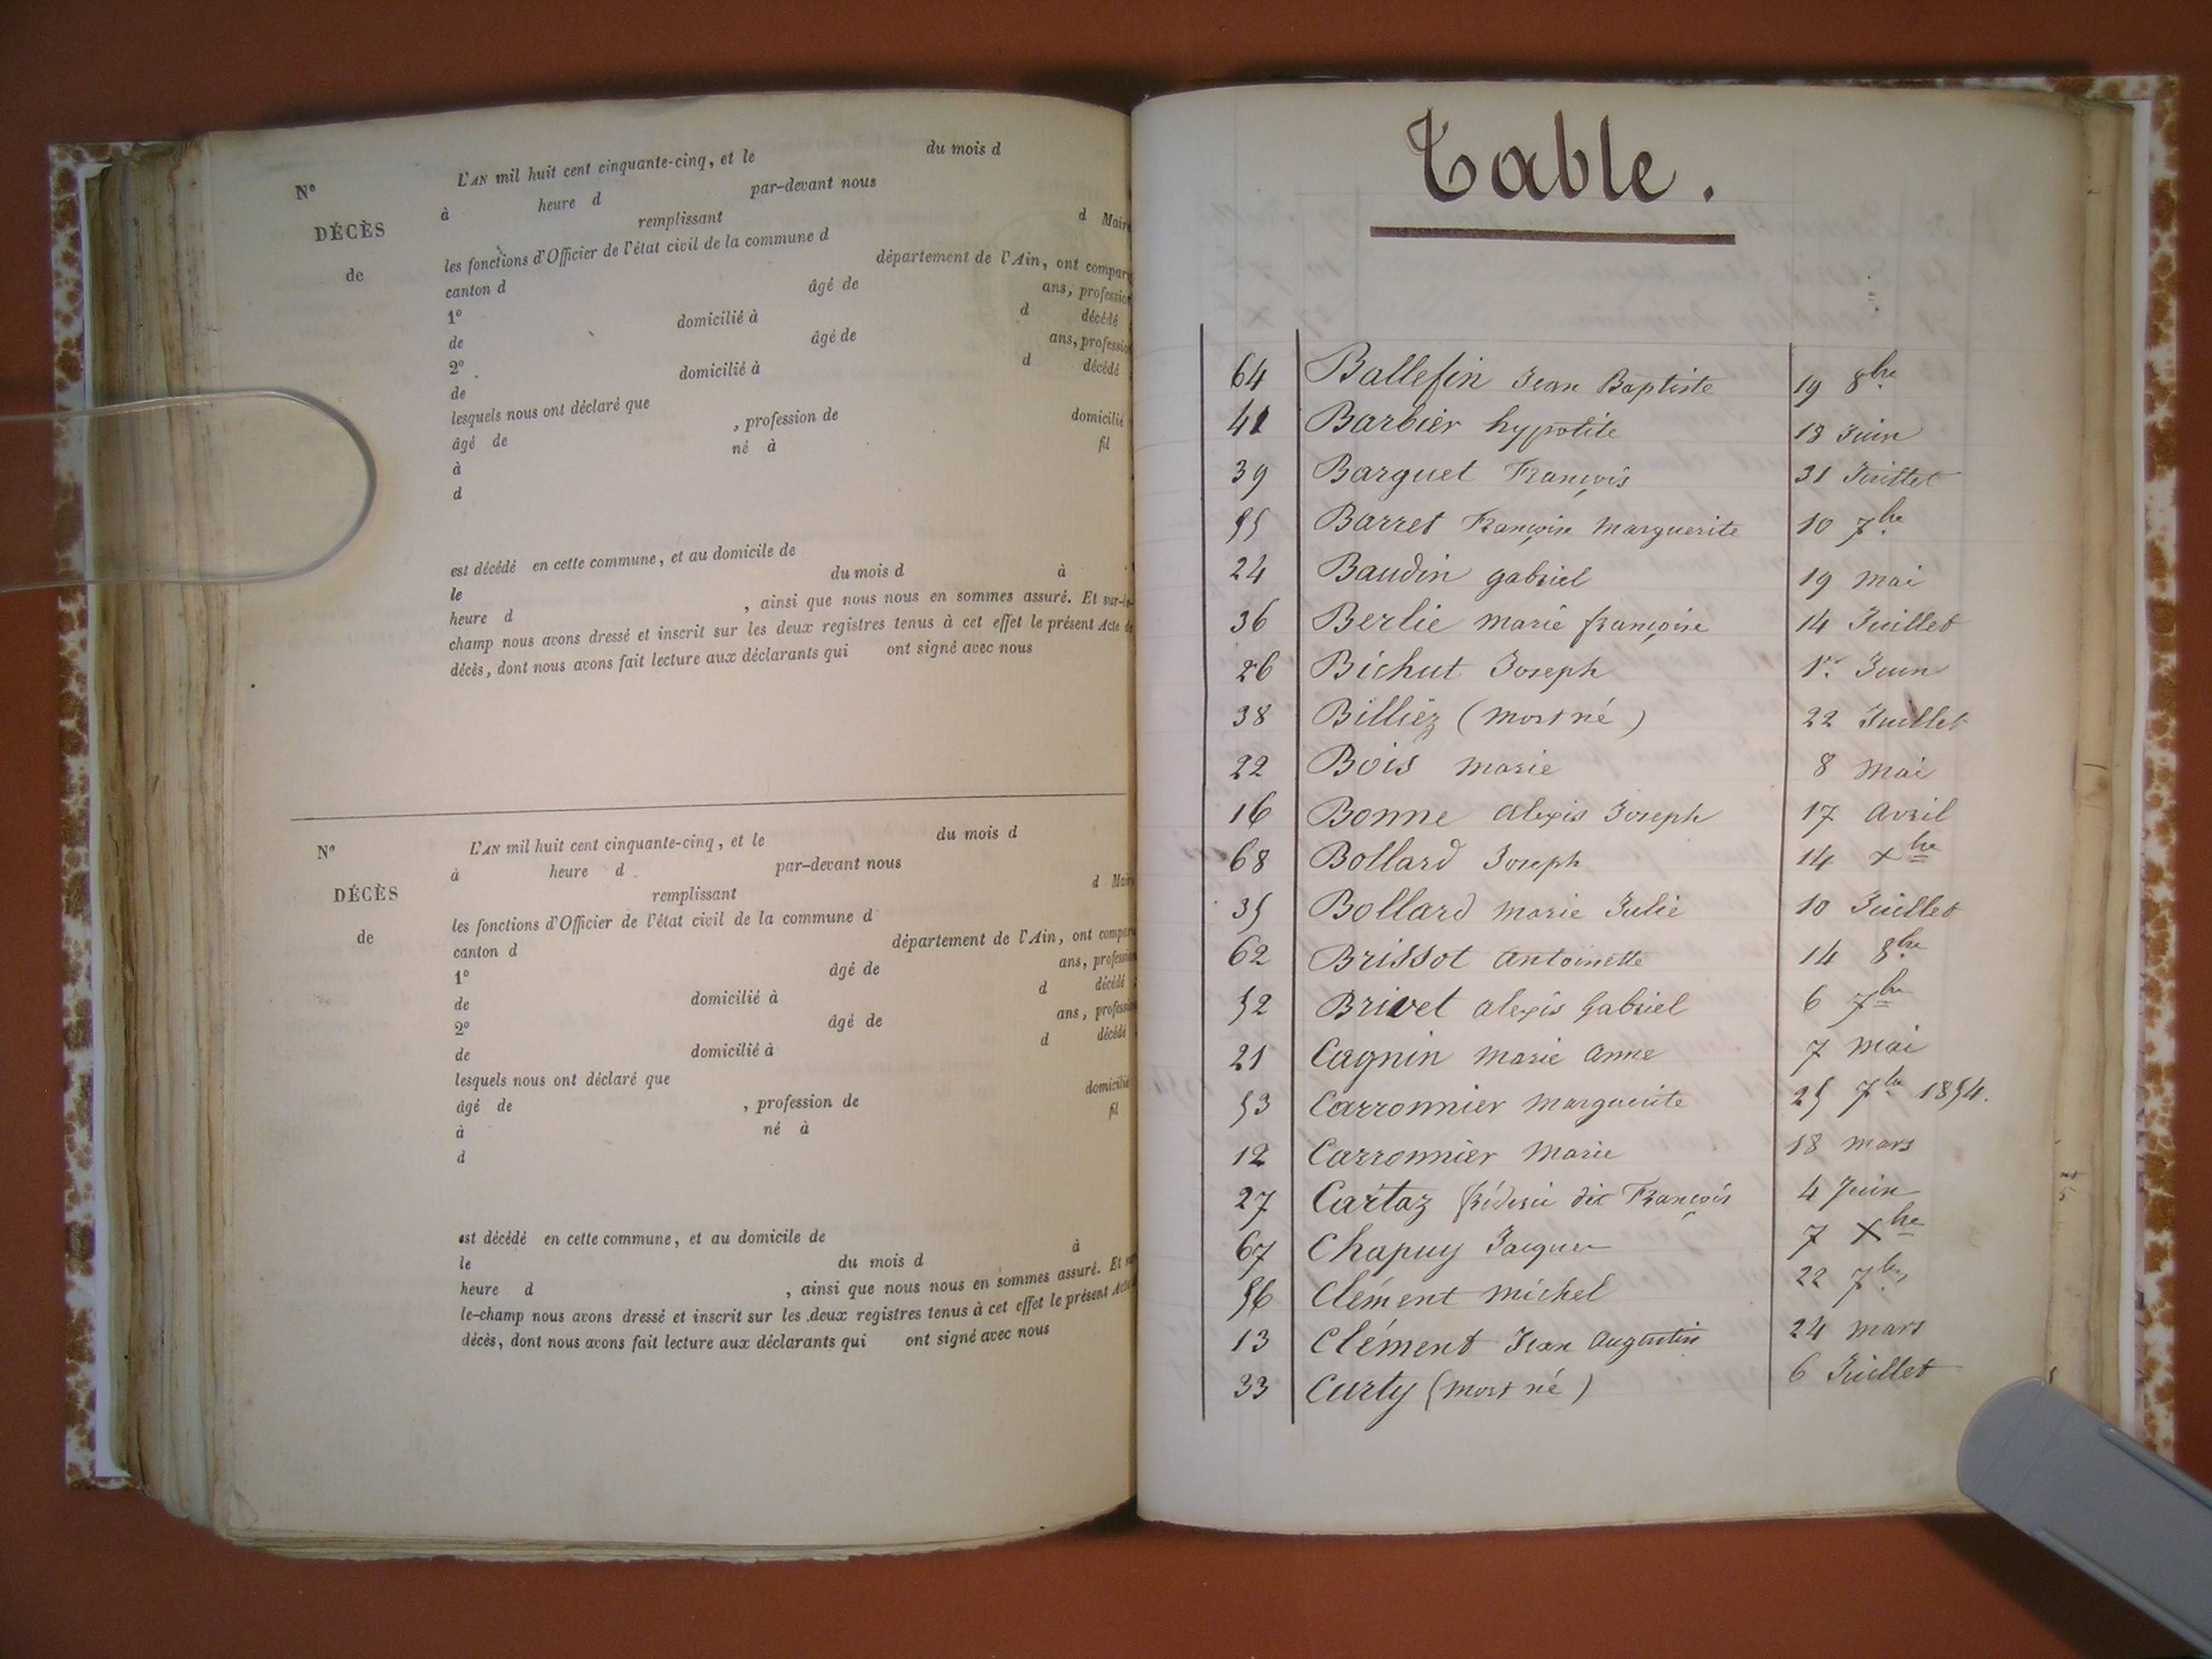 L'AN mil huit cent cinquante-cinq, et le du mois d
N° à heure d par-devant nous
DÉCÈS remplissant d Mair
de les fonctions d'Officier de l'état civil de la commune d
canton d département de l'Ain, ont compar
1° âgé de ans, profession
de domicilié à d décédé
2° âgé de ans, profession
de domicilié à d décédé
lesquels nous ont déclaré que
âgé de , profession de domicilié
à né à fil
d
est décédé en cette commune, et au domicile de
le du mois d à
heure d , ainsi que nous nous en sommes assuré. Et sur-le-
champ nous avons dressé et inscrit sur les deux registres tenus à cet effet le présent Acte de
décès, dont nous avons fait lecture aux déclarants qui ont signé avec nous
N° L'AN mil huit cent cinquante-cinq, et le du mois d
à heure d par-devant nous
DÉCÈS remplissant d Maire
de les fonctions d'Officier de l'état civil de la commune d
canton d département de l'Ain, ont compar
1° âgé de ans, profession
de domicilié à d décédé
2° âgé de ans, profession
de domicilié à d décédé
lesquels nous ont déclaré que
âgé de , profession de domicilié
à né à fil
d
est décédé en cette commune, et au domicile de
le du mois d à
heure d , ainsi que nous nous en sommes assuré. Et sur
le-champ nous avons dressé et inscrit sur les deux registres tenus à cet effet le présent Acte
décès, dont nous avons fait lecture aux déclarants qui ont signé avec nous
Table.
64 Ballefin Jean Baptiste 19 8bre
41 Barbier hypolite 18 Juin
39 Barguet François 31 Juillet
55 Barret Françoise Marguerite 10 7bre
24 Baudin gabriel 19 mai
36 Berlie marie françoise 14 Juillet
26 Bichut Joseph 1er Juin
38 Billiez (mort né) 22 Juillet
22 Bois marie 8 mai
16 Bonne alexis Joseph 17 avril
68 Bollard Joseph 14 xbre
35 Bollard marie Julie 10 Juillet
62 Brissot antoinette 14 8bre
52 Brivet alexis gabriel 6 7bre
21 Cagnin marie anne 7 mai
53 Carronnier marguerite 25 7bre 1854.
12 Carronnier Marie 18 mars
27 Cartaz fréderic dit François 4 Juin
67 Chapuy Jacques 7 Xbre
56 Clément michel 22 7bre
13 Clément Jean augustin 24 mars
33 Curty (mort né) 6 Juillet